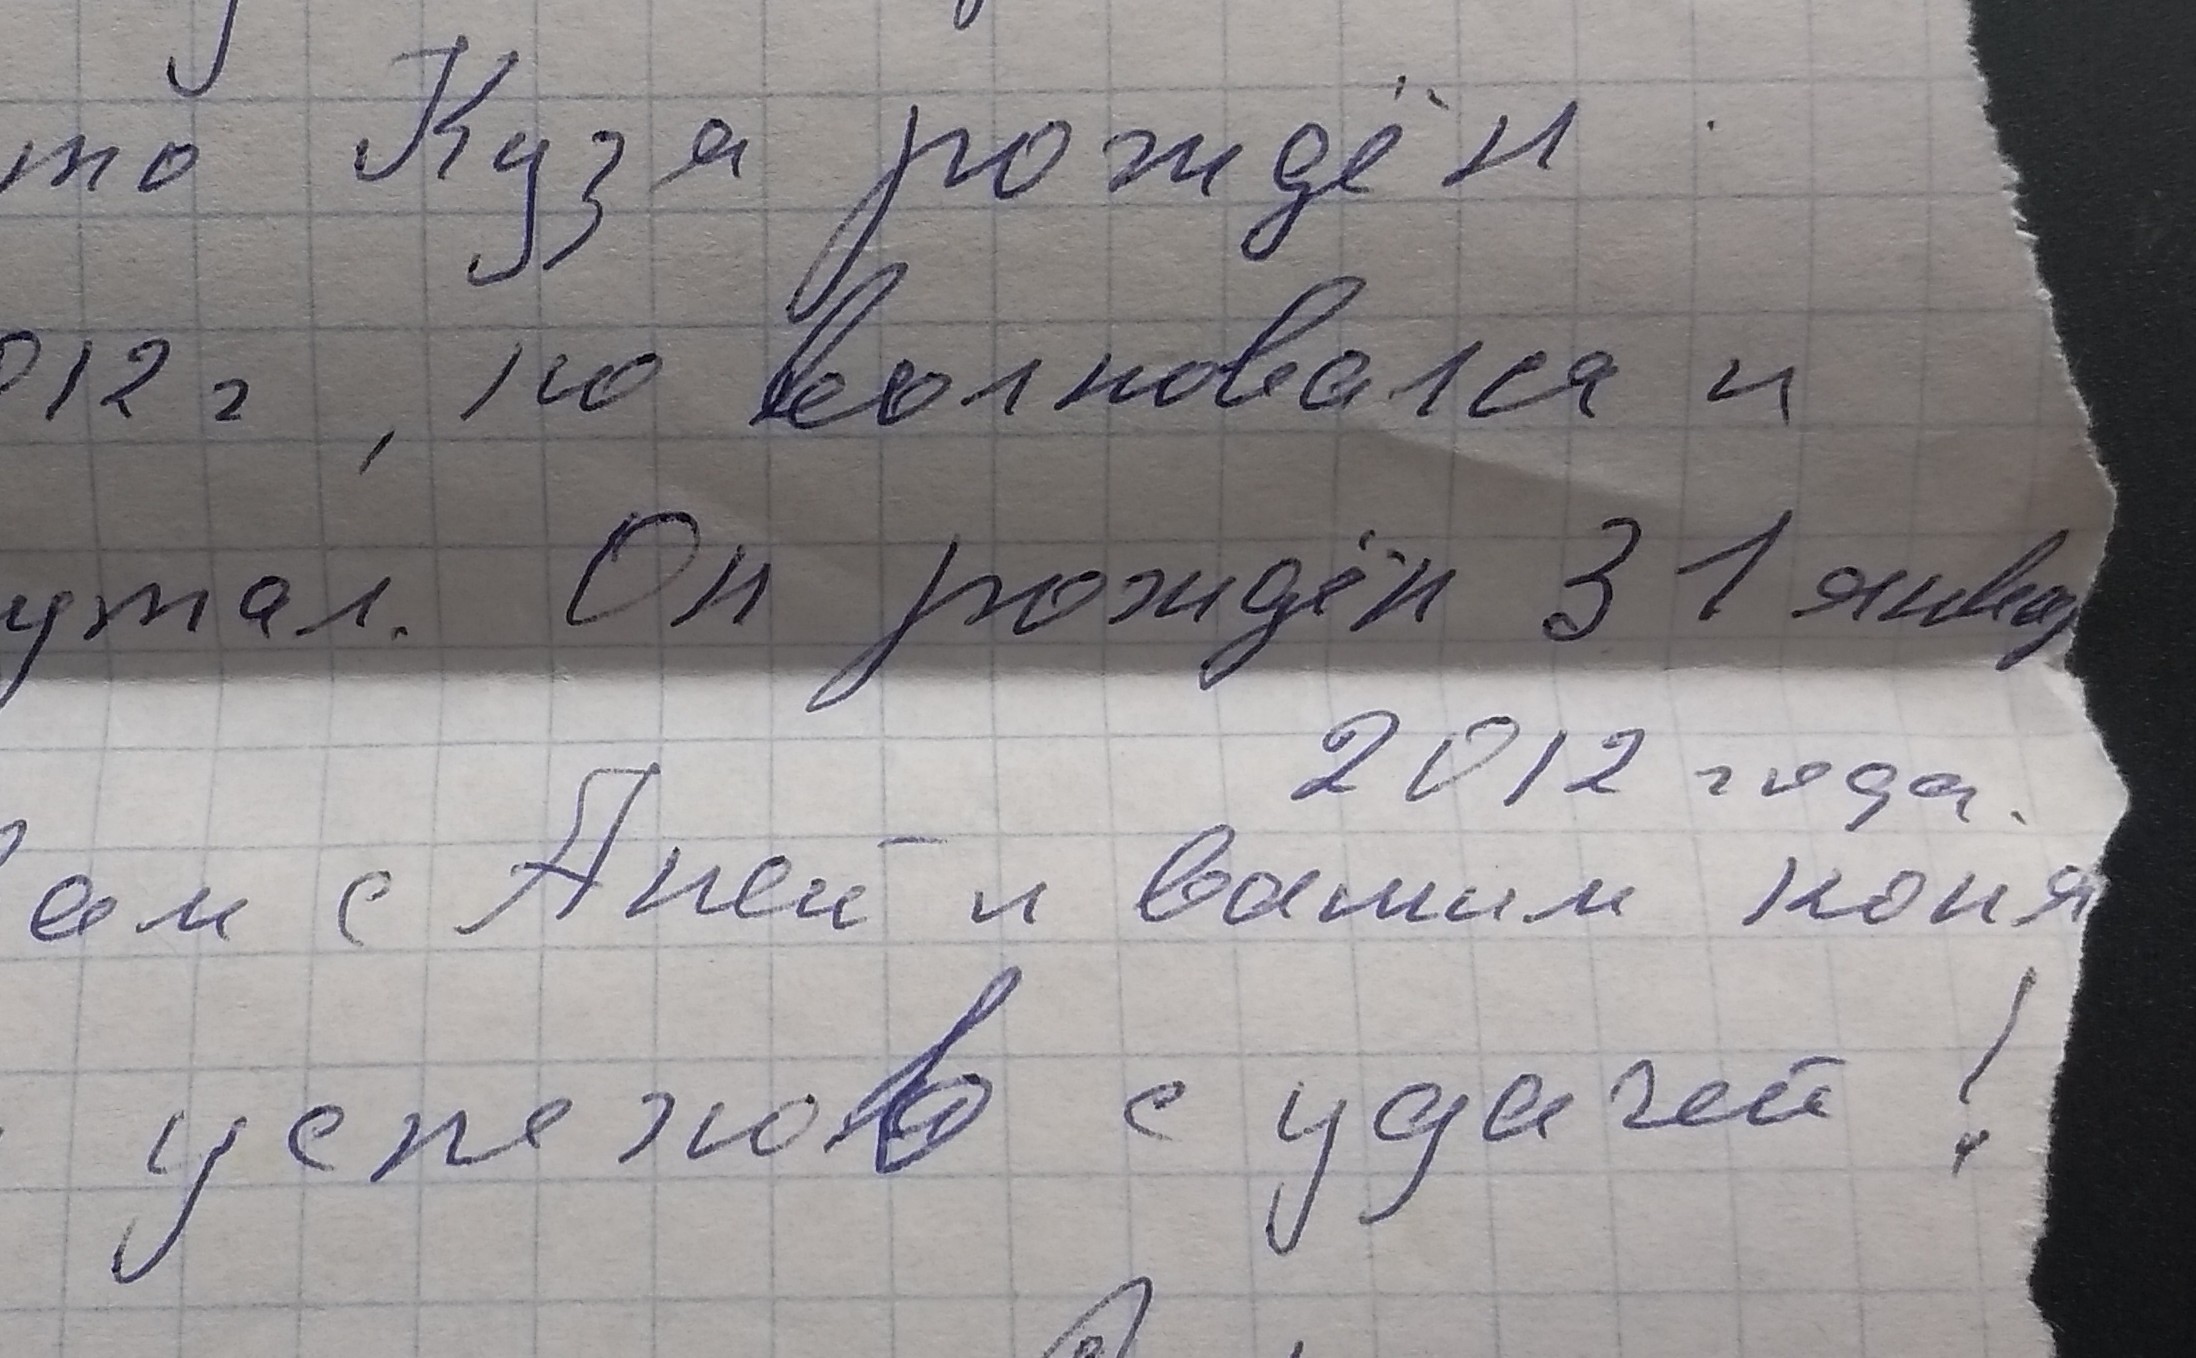 то Кузя рождён
012 г, но волновался и
утал. Он рождён 31 январ
2012 года.
Вам с Аней и вашим коня
успехов с удачей!